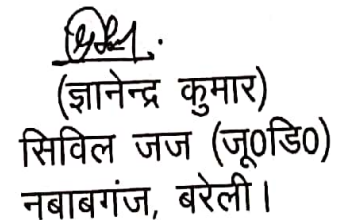 (ज्ञानेन्द्र कुमार)
सिविल जज (जू0डि0)
नबाबगंज, बरेली।